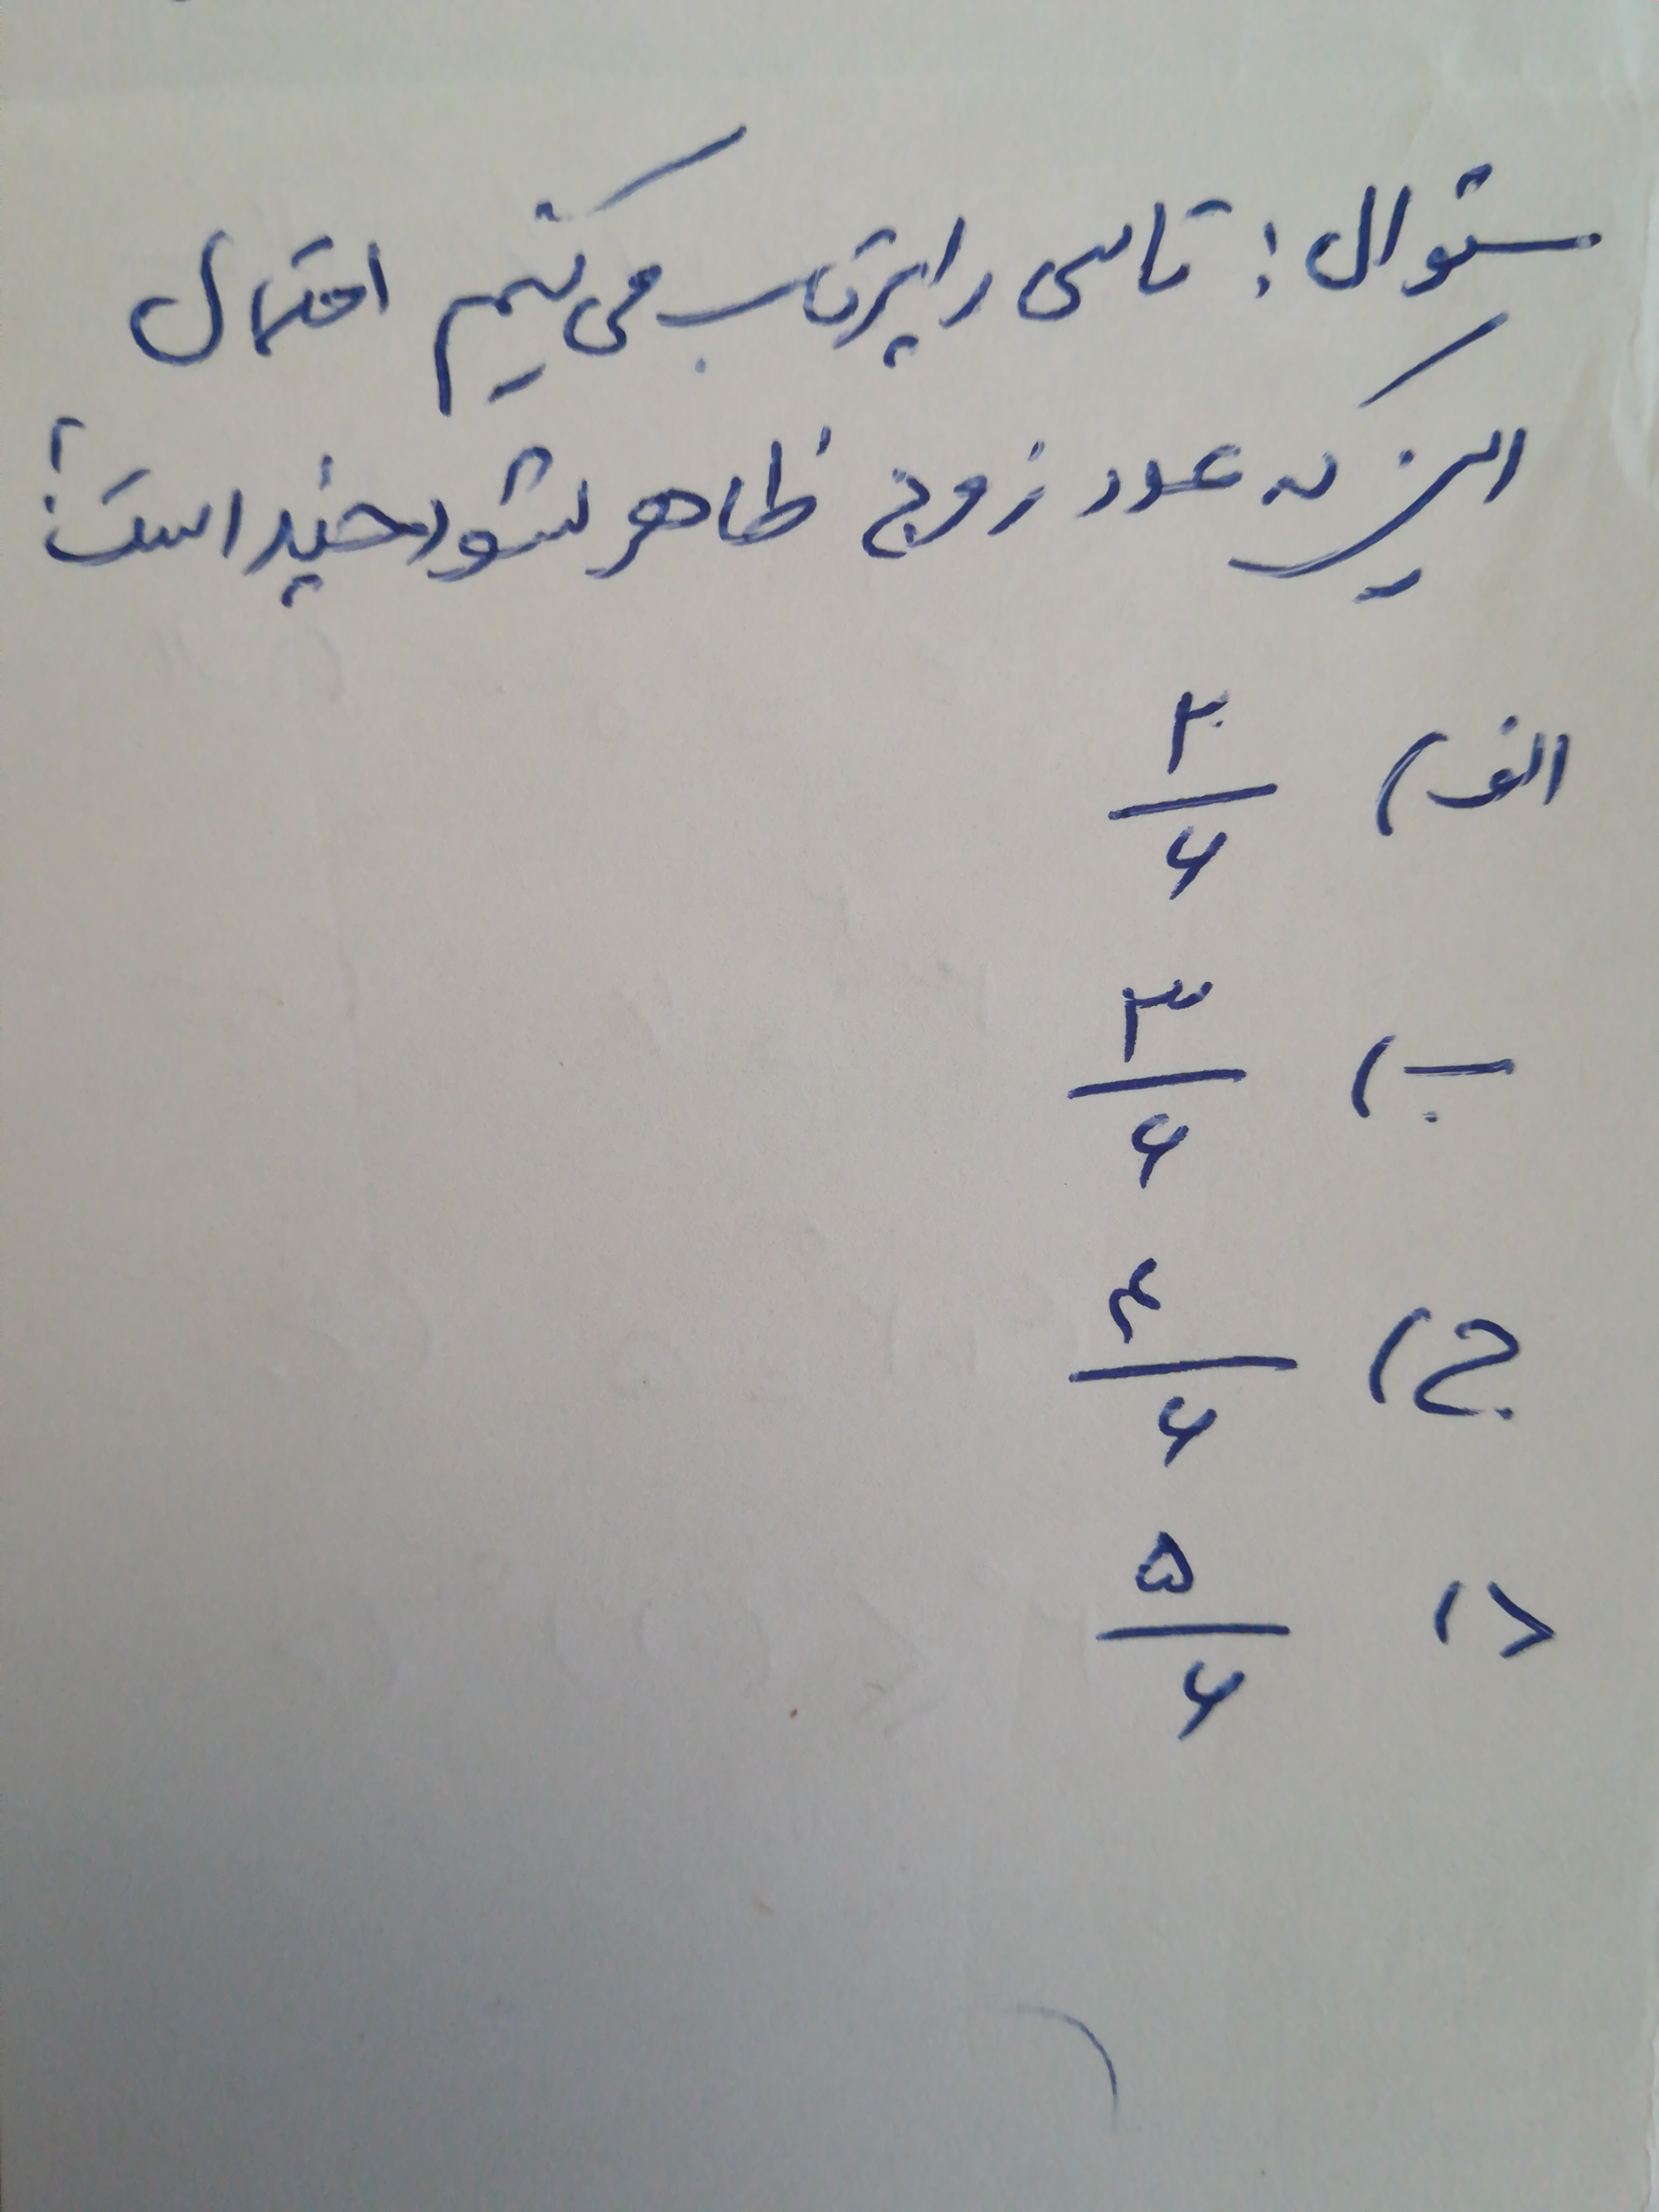 سئوال: تاسی را پرتاب می‌کنیم احتمال
این که عدد زوج ظاهر شود چند است؟
الف) ۲/۶
ب) ۳/۶
ج) ۴/۶
د) ۵/۶